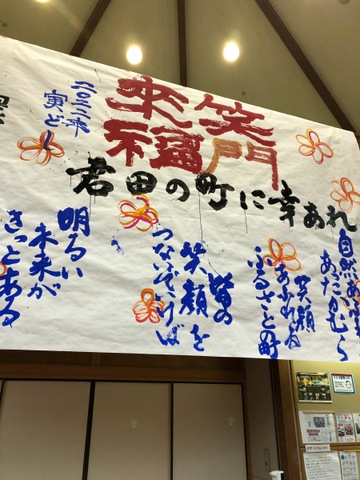 笑門
来福
二〇二二年
寅どし
君田の町に幸あれ
自然
笑顔
あふれる
ふるさと町
皆の
笑顔を
明るい
未来が
きっとある